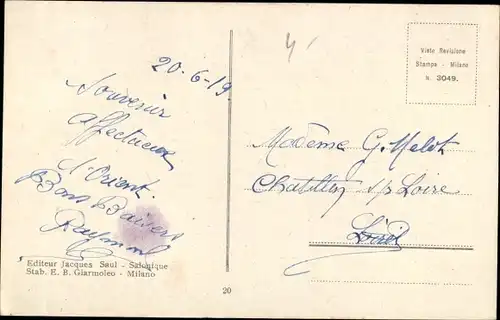 20-6-19
Souvenir
affectueux
d'Orient.
Bons Baisers
Raymond
Editeur Jacques Saul - Salonique
Stab. E. B. Giarmoleo - Milano
20
Visto Revisione
Stampa - Milano
N. 3049.
Madame G. Melot
Chatillon s/s Loire
Loiret